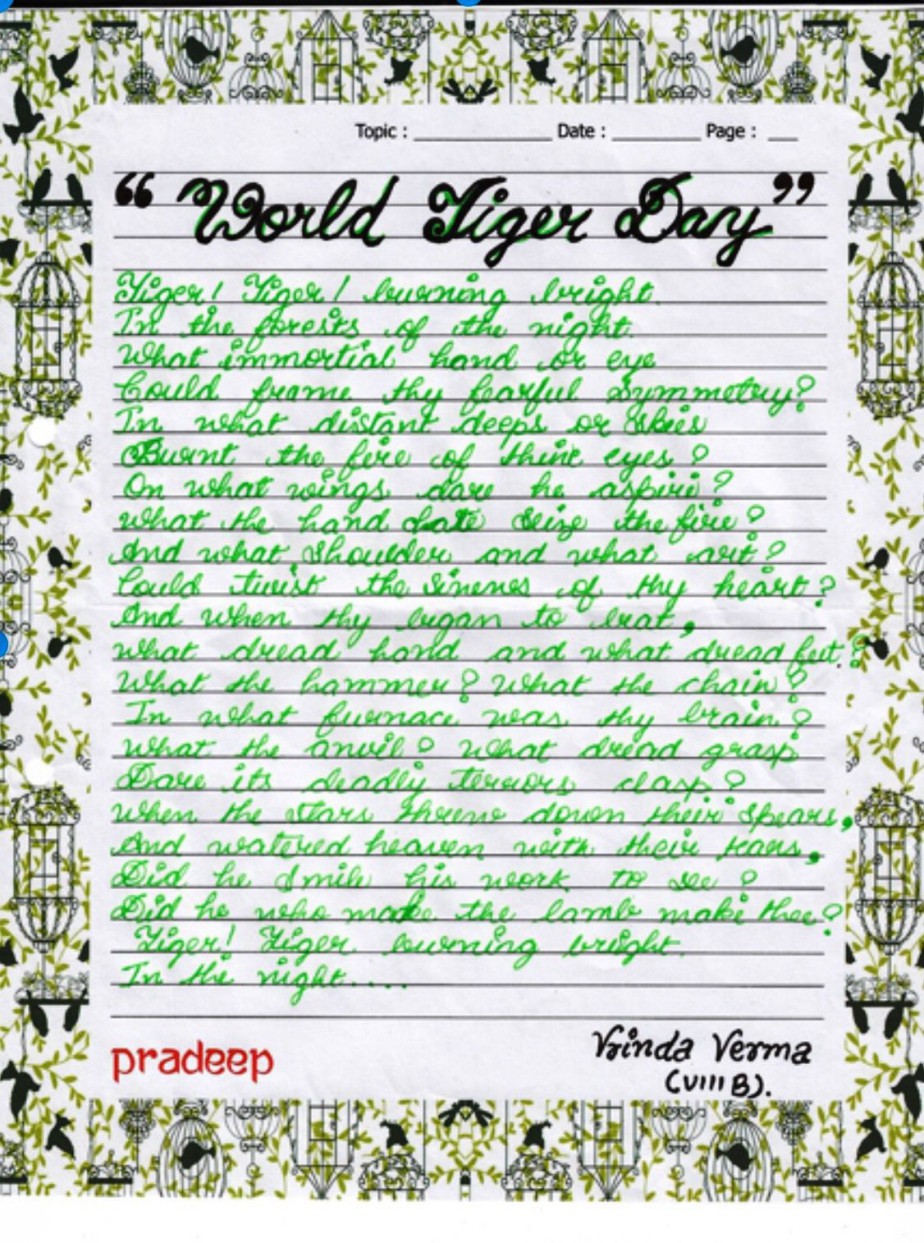 Topic : Date : Page :
“World Tiger Day”
Tiger! Tiger! burning bright.
In the forests of the night.
What immortial hand or eye
Could frame thy fearful Symmetry?
In what distant deeps or Skies
Burnt the fire of thine eyes?
On what wings dare he aspire?
What the hand date Seize the fire?
And what Shoulder and what art?
Could twist the Sinenes of thy heart?
And when thy began to beat,
What dread hand and what dread feet?
What the hammer? What the chain?
In what furnace was thy brain?
What the anvil? What dread grasp
Dare its deadly terrors clasp?
When the stars threw down their Spears,
And watered heaven with their tears,
Did he Smile his work to see?
Did he who make the lamb make thee?
Tiger! Tiger burning bright.
In the night....
pradeep
Vrinda Verma
(VIII B).